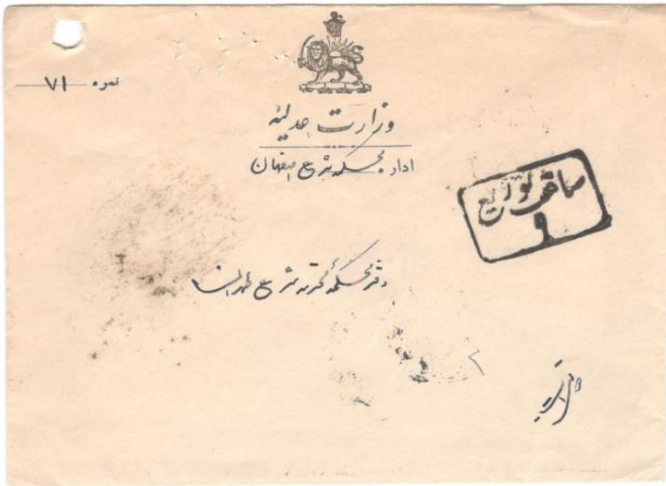 نمره ۷۱
وزارت عدلیه
اداره محکمه شرع اصفهان
ساعت توزیع
۹
دفتر محکمه محترمه شرع طهران